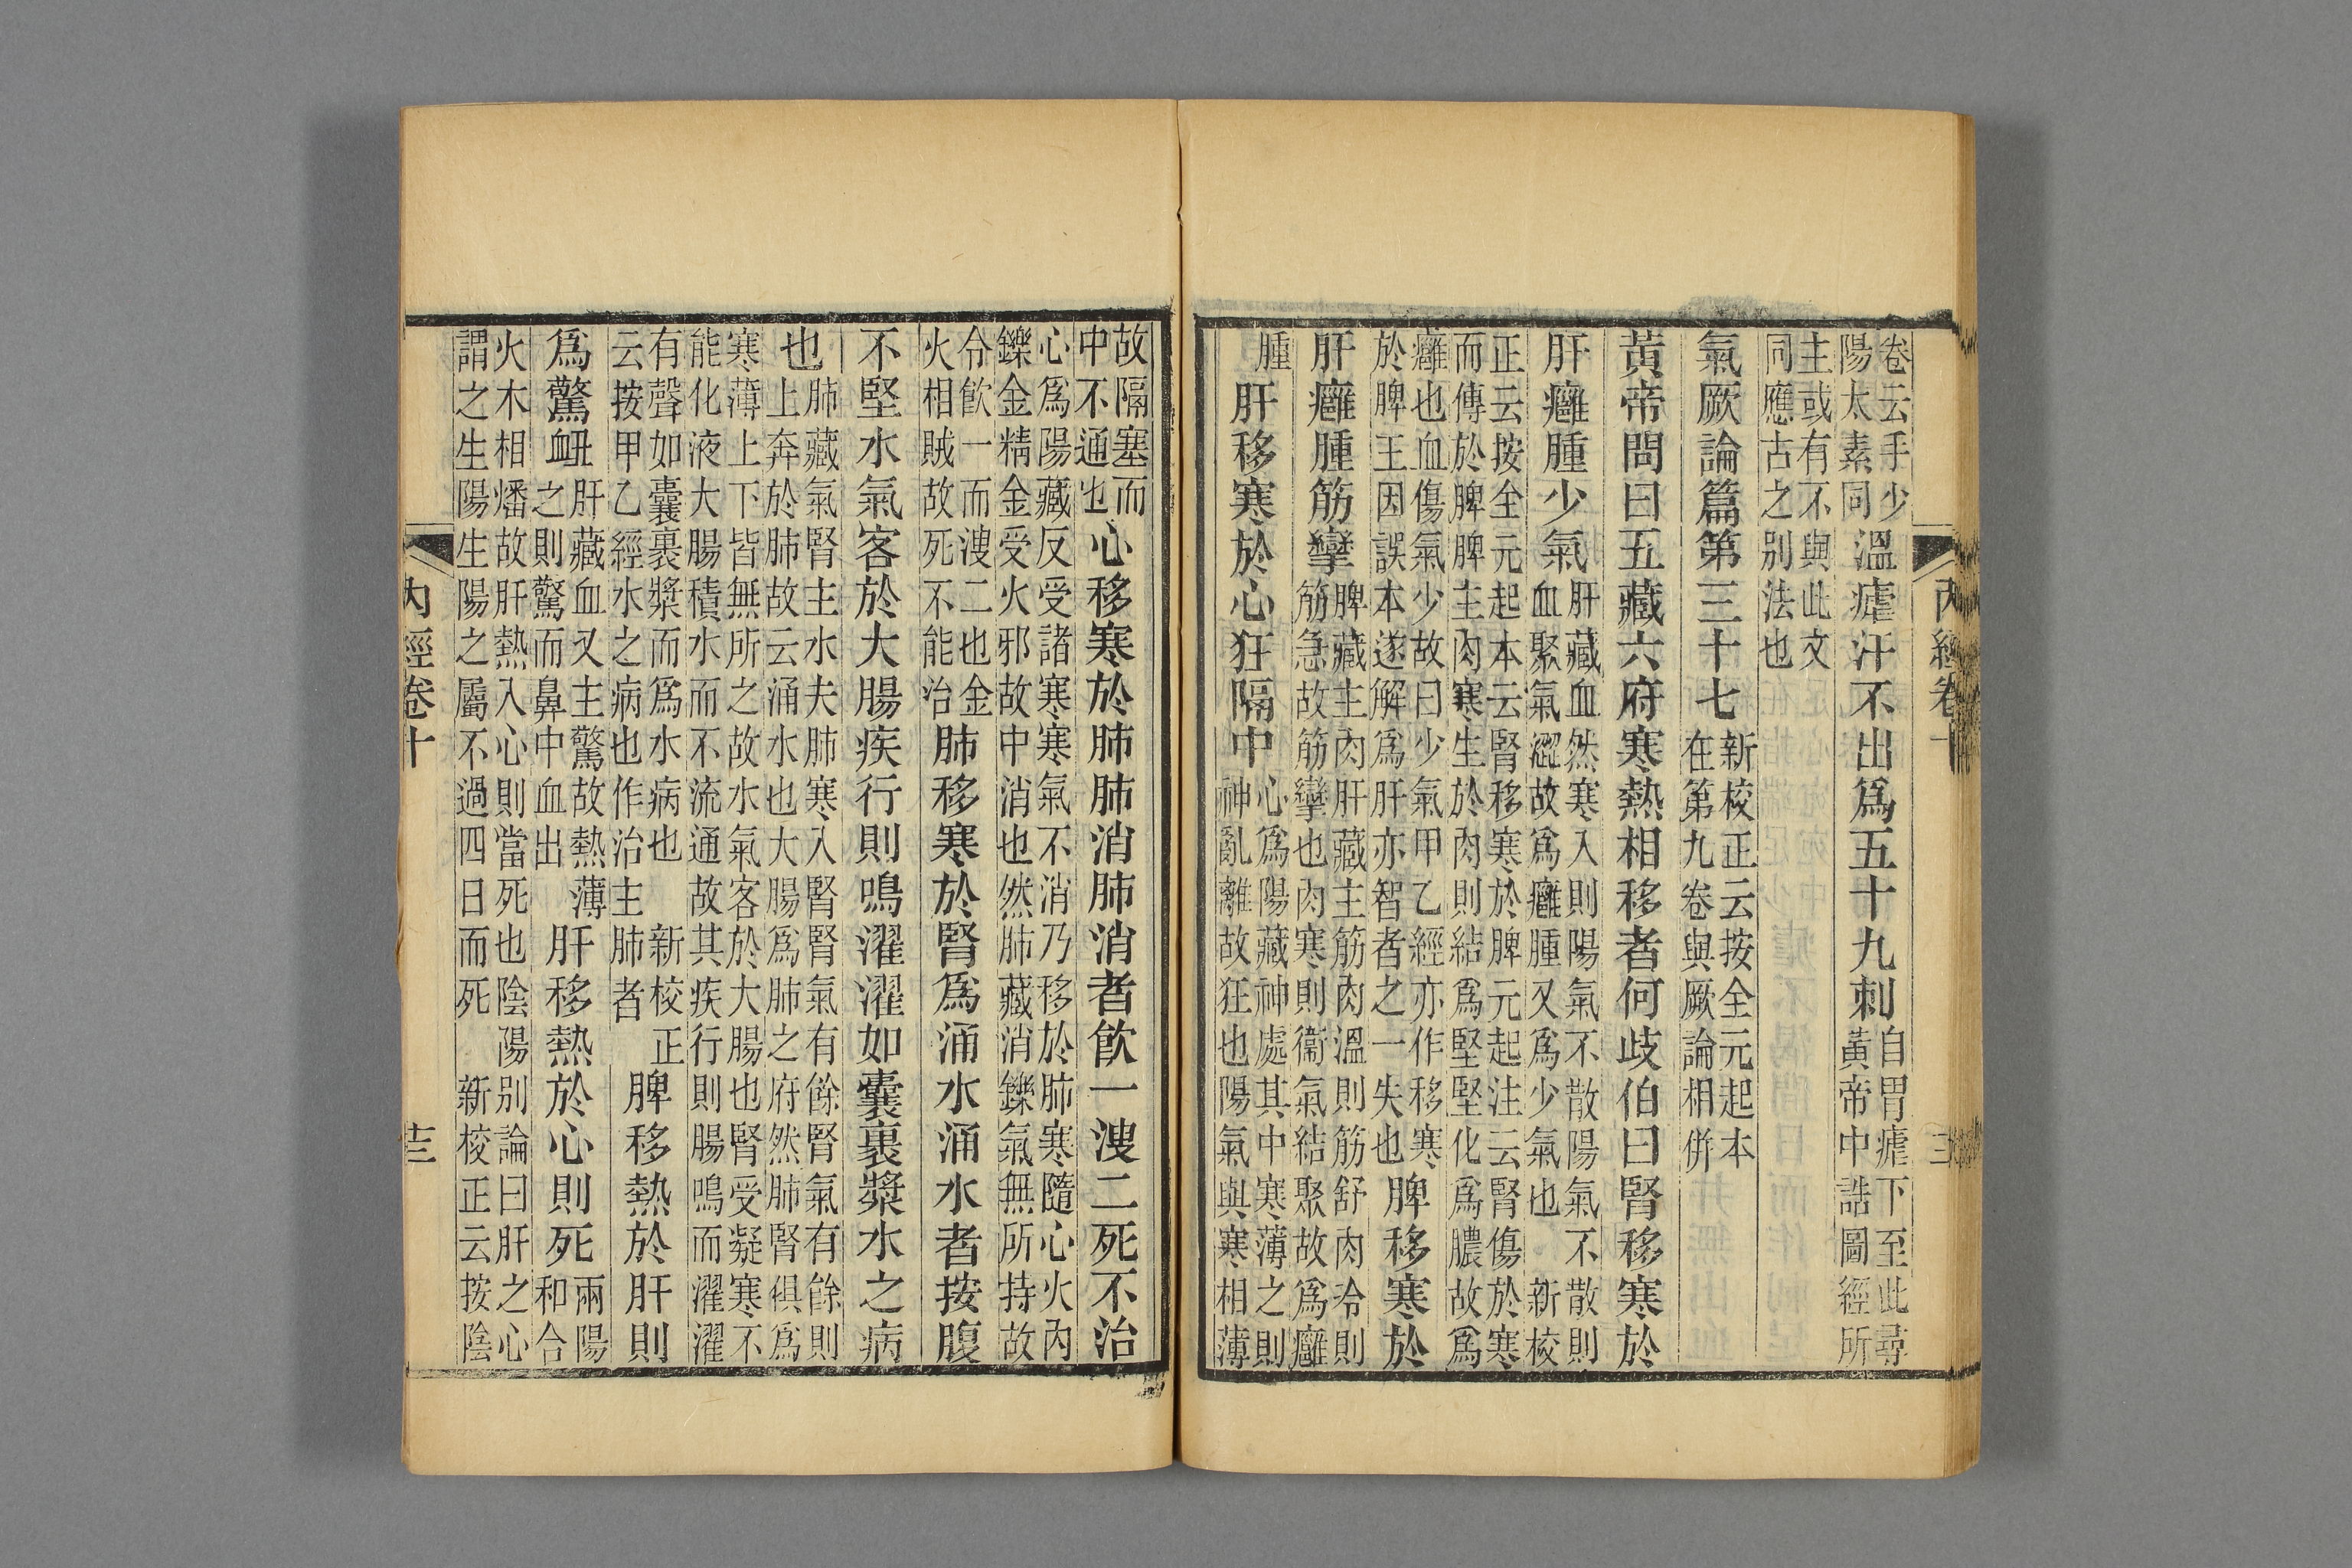 卷云手少
陽太素同
溫瘧汗不出爲五十九刺
自胃瘧下至此尋
黃帝中誥圖經所
主或有不與此文
同應古之别法也
氣厥論篇第三十七
新校正云按全元起本
在第九卷與厥論相併
黃帝問曰五藏六府寒熱相移者何歧伯曰腎移寒於
肝癰腫少氣
肝藏血然寒入則陽氣不散陽氣不散則
血聚氣澀故爲癰腫又爲少氣也 新校
正云按全元起本云腎移寒於脾元起注云腎傷於寒
而傳於脾脾主肉寒生於肉則結爲堅堅化爲膿故爲
癰也血傷氣少故曰少氣甲乙經亦作移寒
於脾王因誤本遂解爲肝亦智者之一失也
脾移寒於
肝癰腫筋攣
脾藏主肉肝藏主筋肉溫則筋舒肉冷則
筋急故筋攣也肉寒則衞氣結聚故爲癰
腫
肝移寒於心狂隔中
心爲陽藏神處其中寒薄之則
神亂離故狂也陽氣與寒相薄
故隔塞而
中不通也
心移寒於肺肺消肺消者飮一溲二死不治
心爲陽藏反受諸寒寒氣不消乃移於肺寒隨心火內
鑠金精金受火邪故中消也然肺藏消鑠氣無所持故
令飮一而溲二也金
火相賊故死不能治
肺移寒於腎爲涌水涌水者按腹
不堅水氣客於大腸疾行則鳴濯濯如囊裹漿水之病
也
肺藏氣腎主水夫肺寒入腎腎氣有餘腎氣有餘則
上奔於肺故云涌水也大腸爲肺之府然肺腎俱爲
寒薄上下皆無所之故水氣客於大腸也腎受凝寒不
能化液大腸積水而不流通故其疾行則腸鳴而濯濯
有聲如囊裹漿而爲水病也 新校正
云按甲乙經水之病也作治主肺者
脾移熱於肝則
爲驚衄
肝藏血又主驚故熱薄
之則驚而鼻中血出
肝移熱於心則死
兩陽
和合
火木相燔故肝熱入心則當死也陰陽别論曰肝之心
謂之生陽生陽之屬不過四日而死 新校正云按陰
內經卷十